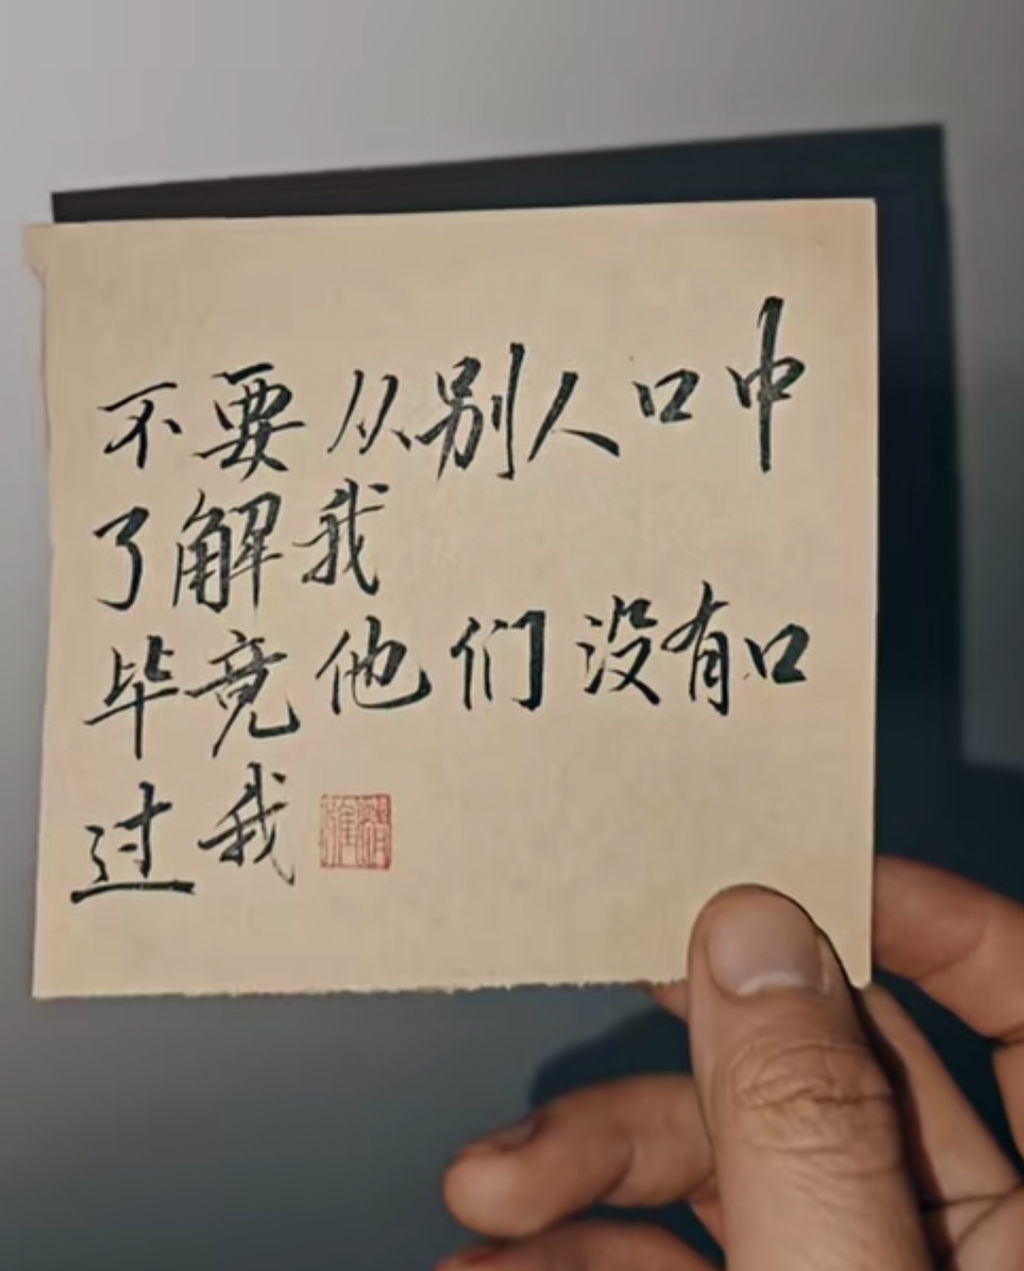 不要从别人口中
了解我
毕竟他们没有口
过我